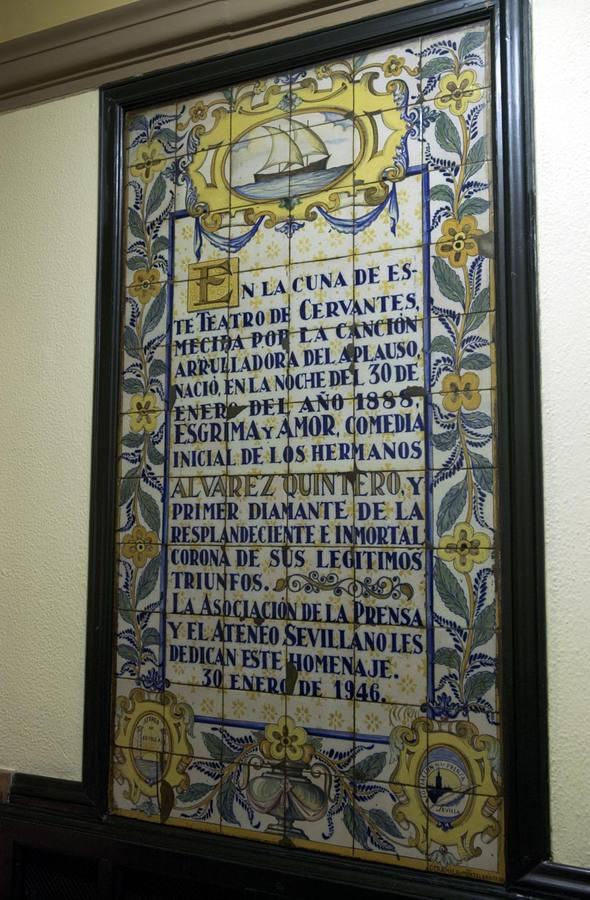 EN LA CUNA DE ES-
TE TEATRO DE CERVANTES,
MECIDA POR LA CANCIÓN
ARRULLADORA DEL APLAUSO,
NACIÓ, EN LA NOCHE DEL 30 DE
ENERO DEL AÑO 1888,
ESGRIMA Y AMOR, COMEDIA
INICIAL DE LOS HERMANOS
ALVAREZ QUINTERO, Y
PRIMER DIAMANTE DE LA
RESPLANDECIENTE E INMORTAL
CORONA DE SUS LEGITIMOS
TRIUNFOS.
LA ASOCIACIÓN DE LA PRENSA
Y EL ATENEO SEVILLANO LES
DEDICAN ESTE HOMENAJE.
30 ENERO DE 1946.
SEVILLA